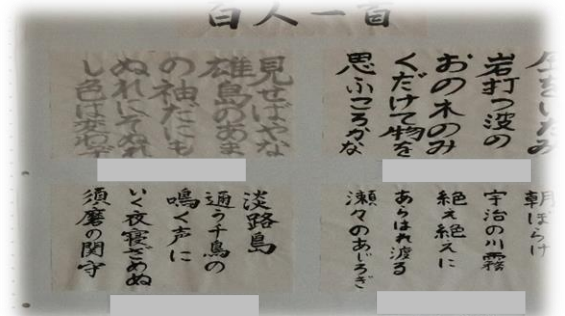 百人一首
をいたみ
岩打つ波の
おのれのみ
くだけて物を
思ふころかな
見せばやな
雄島のあま
の袖だにも
ぬれにぞぬれ
し色は変わらず
朝ぼらけ
宇治の川霧
絶え絶えに
あらはれ渡る
瀬々のあじろぎ
淡路島
通う千鳥の
鳴く声に
いく夜寝ざめぬ
須磨の関守